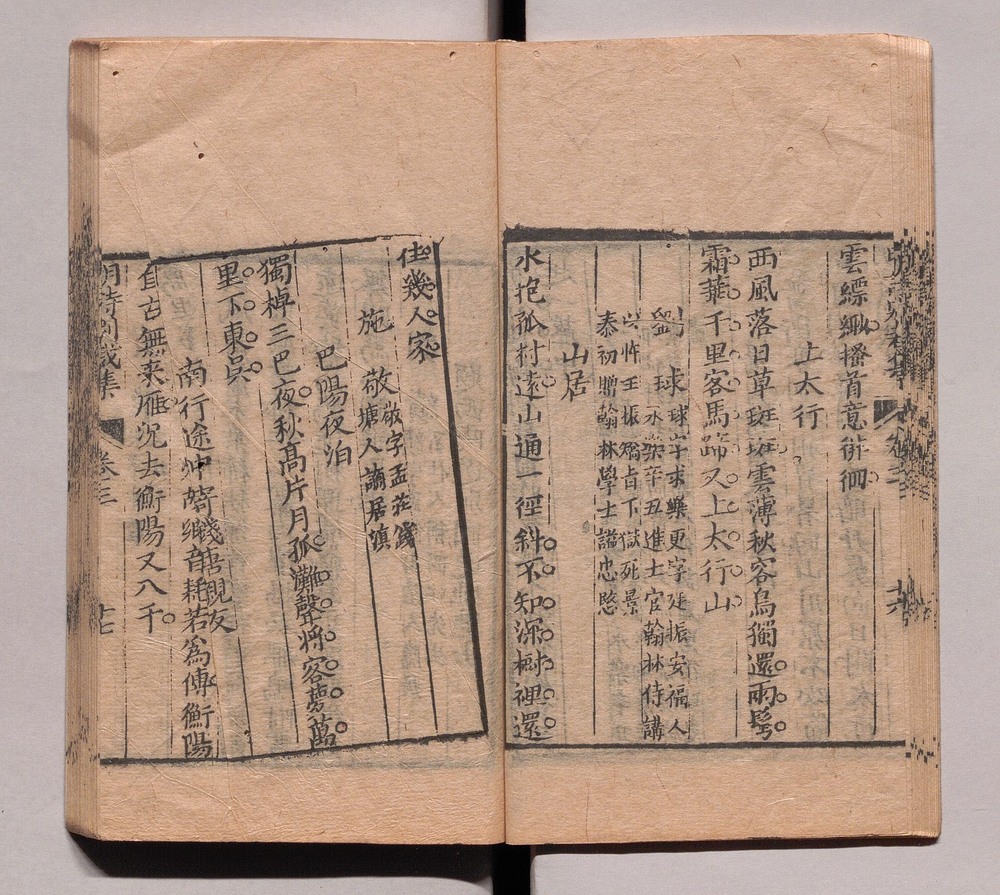 雲縹緲播首意徘徊
上太行
西風落日草斑斑雲薄秋容烏獨還兩鬂
霜華千里客馬蹄又上太行山
劉　球球字求樂更字廷振安福人
永樂辛丑進士官翰林侍講
以忤王振矯旨下獄死景
泰初贈翰林學士謚忠愍
山居
水抱孤村遠山通一徑斜不知深樹裡還
住幾人家
施　敬敬字孟莊錢
塘人謫居滇
巴陽夜泊
獨棹三巴夜秋高片月孤灘聲將客夢萬
里下東吳
南行途中寄錢唐親友
音耗若爲傳衡陽
自古無来雁況去衡陽又八千
卷三
十七